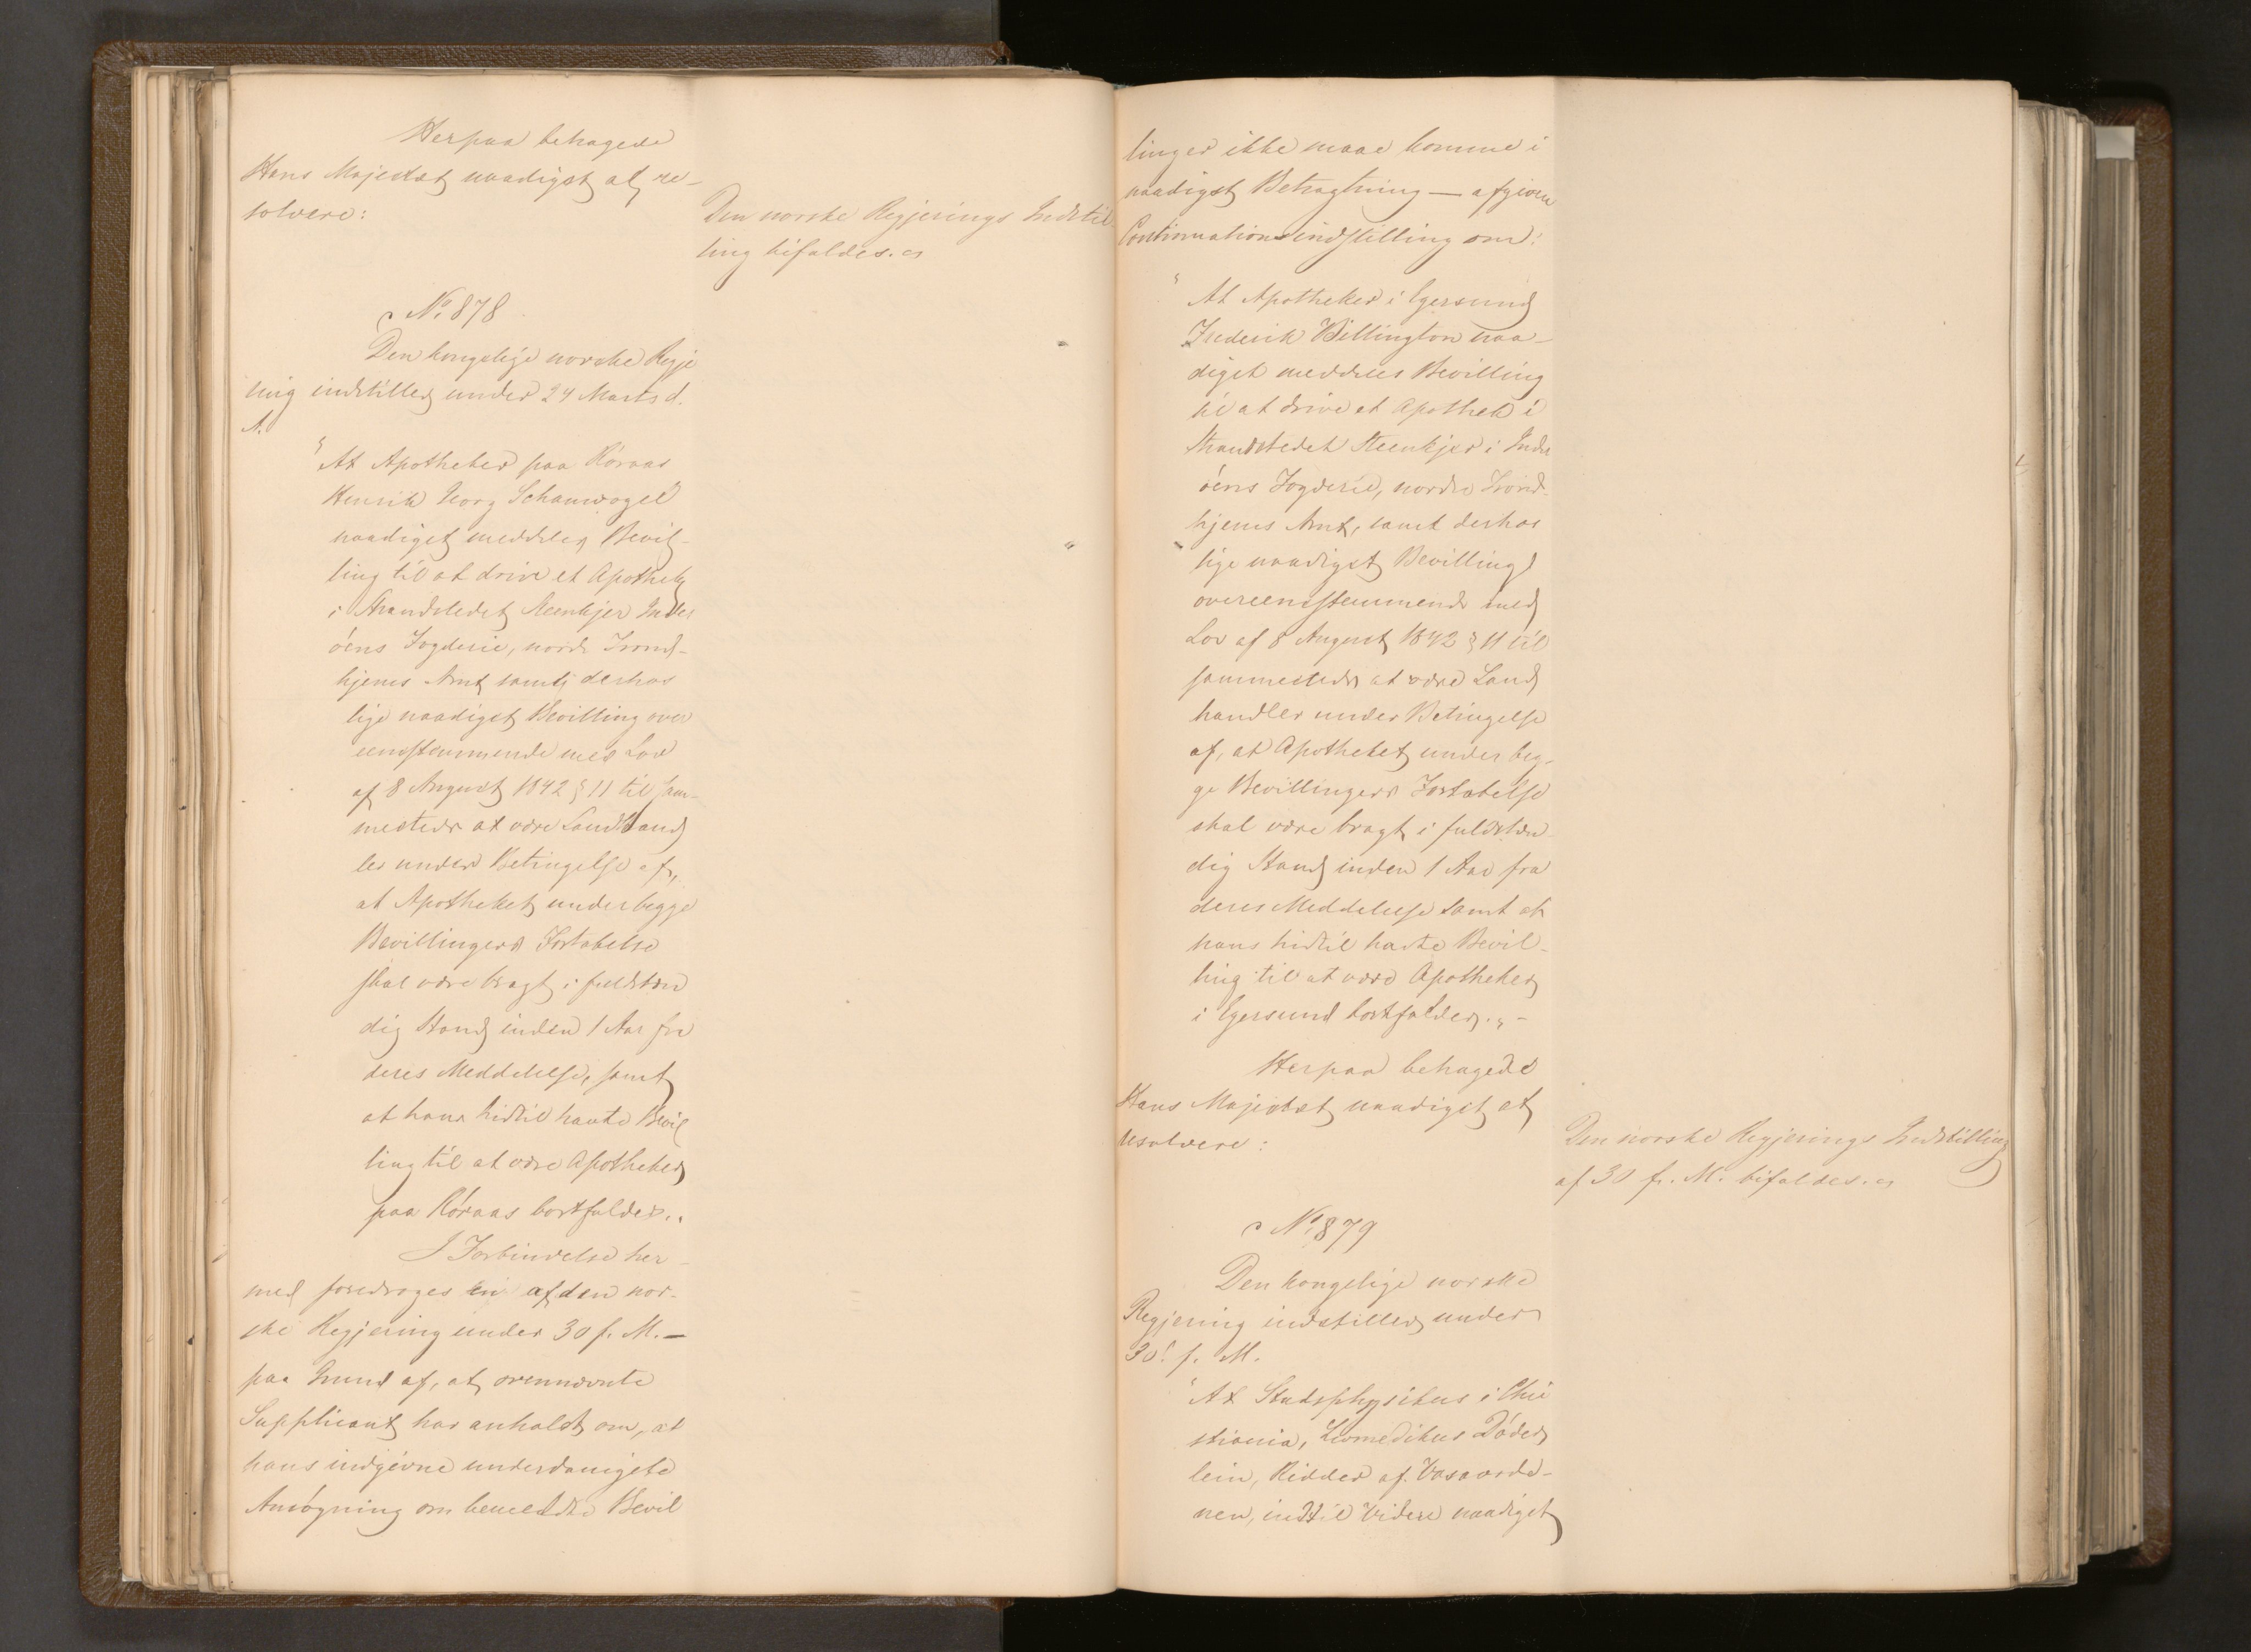 Herpaa behagede
Hans Majestæt naadigst at re-
solvere:
Den norske Regjerings Indstil-
ling bifaldes.
No 878
Den kongelige norske Regje
ring indstiller under 24 Marts d.
A.
"At Apotheker paa Røraas
Henrik Georg Schauvogel
naadigst meddeles Bevil-
ling til at drive et Apothek
i Strandstedet Steenkjer Inder
øens Fogderie, nordre Trond-
hjems Amt samt derhos
lige naadigst Bevilling over
eensstemmende med Lov
af 8 August 1842 § 11 til sam-
mesteds at være Landhand
ler under Betingelse af,
at Apotheket under begge
Bevillingers Fortabelse
skal være bragt i fuldstæn
dig Stand inden 1 Aar fra
deres Meddelelse, samt
at hans hidtil havte Bevil
ling til at være Apotheker
paa Røraas bortfalder."
I Forbindelse her-
med foredroges en af den nor-
ske Regjering under 30 f. M. –
paa Grund af, at ovennævnte
Supplicant har anholdt om, at
hans indgivne underdanigste
Ansøgning om bemeldte Bevil
linger ikke maae komme i
naadigst Betragtning – afgiven
Continuationsindstilling om:
"At Apotheker i Egersund
Frederik Billington naa-
digst meddeles Bevilling
til at drive et Apothek i
Strandstedet Steenkjer i Inder
øens Fogderie, nordre Trond-
hjems Amt, samt derhos
lige naadigst Bevilling
overeensstemmende med
Lov af 8 August 1842 § 11 til
sammesteds at være Land
handler under Betingelse
af, at Apotheket under beg-
ge Bevillingers Fortabelse
skal være bragt i fuldstæn-
dig Stand inden 1 Aar fra
deres Meddelelse samt at
hans hidtil havte Bevil-
ling til at være Apotheker
i Egersund bortfalder." –
Herpaa behagede
Hans Majestæt naadigst at
resolvere:
Den norske Regjerings Indstilling
af 30 f. M. bifaldes.
No 879
Den kongelige norske
Regjering indstiller under
30 f. M.
"At Stadsphysikus i Chri
stiania, Livmedikus Døder
lein, Ridder af Vasaorde-
nen, indtil Videre naadigst